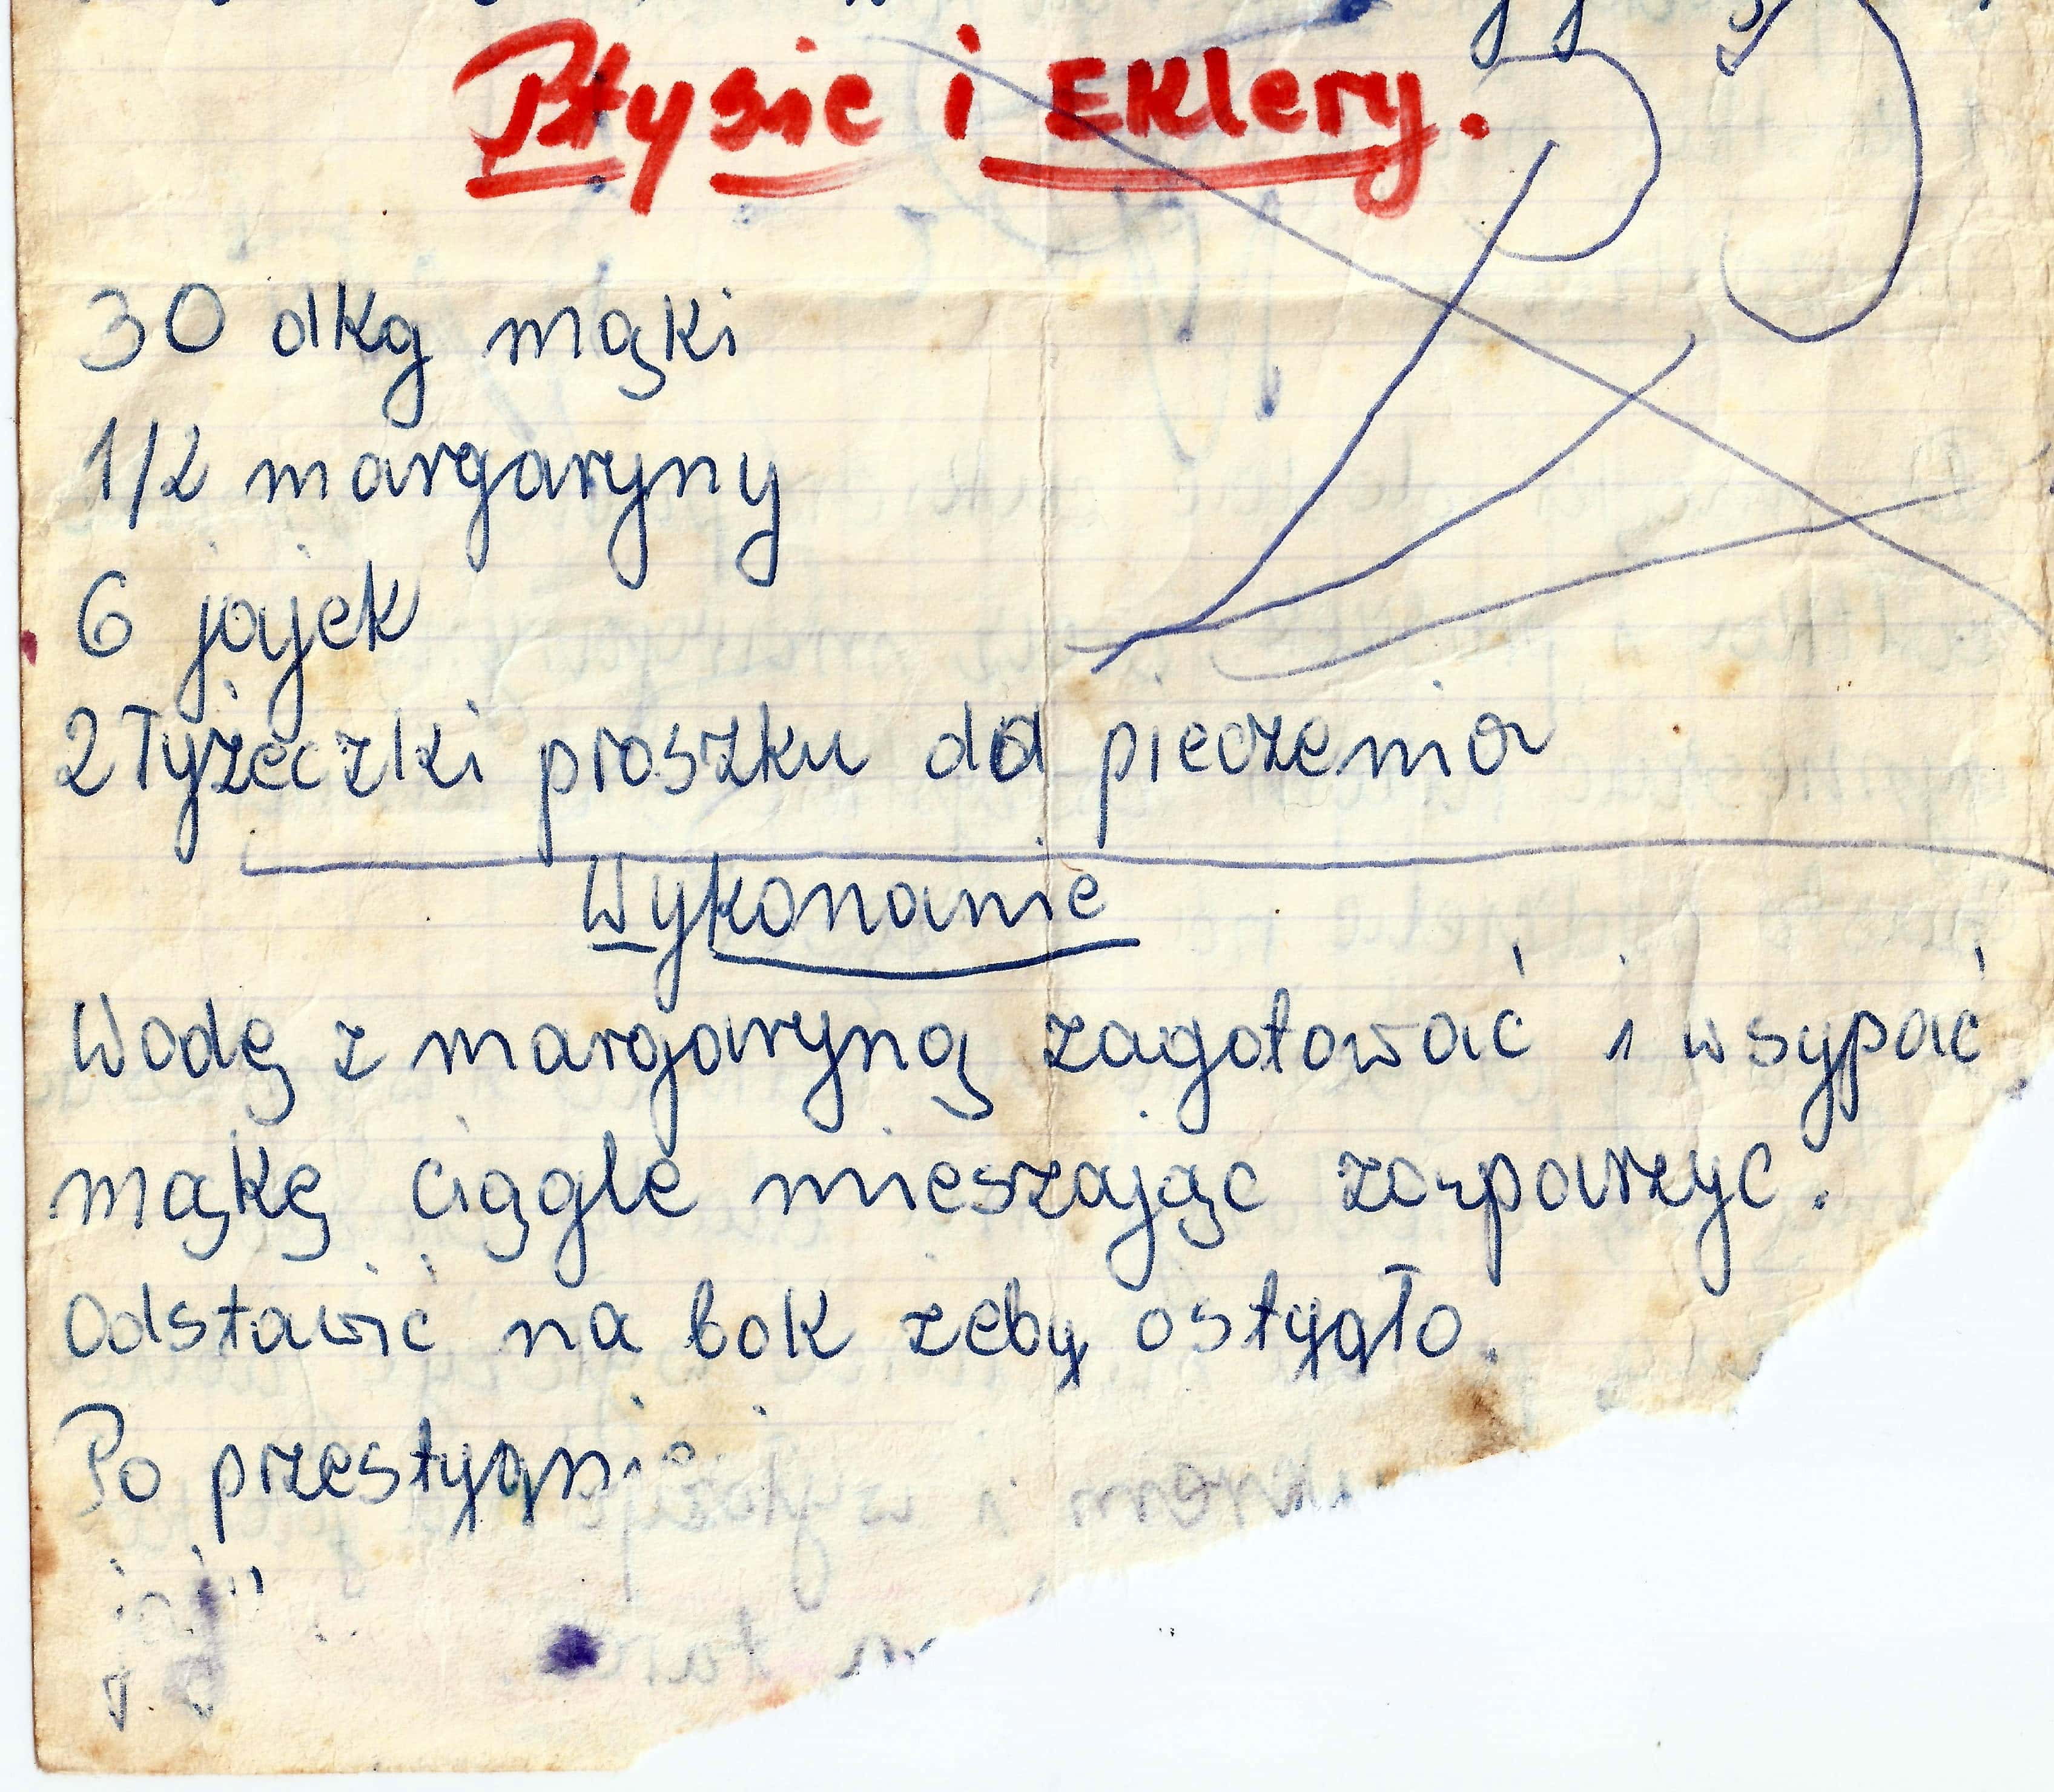 Ptysie i Eklery.
30 dkg mąki
1/2 margaryny
6 jajek
2 łyżeczki proszku do pieczenia
Wykonanie
Wodę z margaryną zagotować i wsypać
mąkę ciągle mieszając zaparzyc.
Odstawić na bok żeby ostygło.
Po